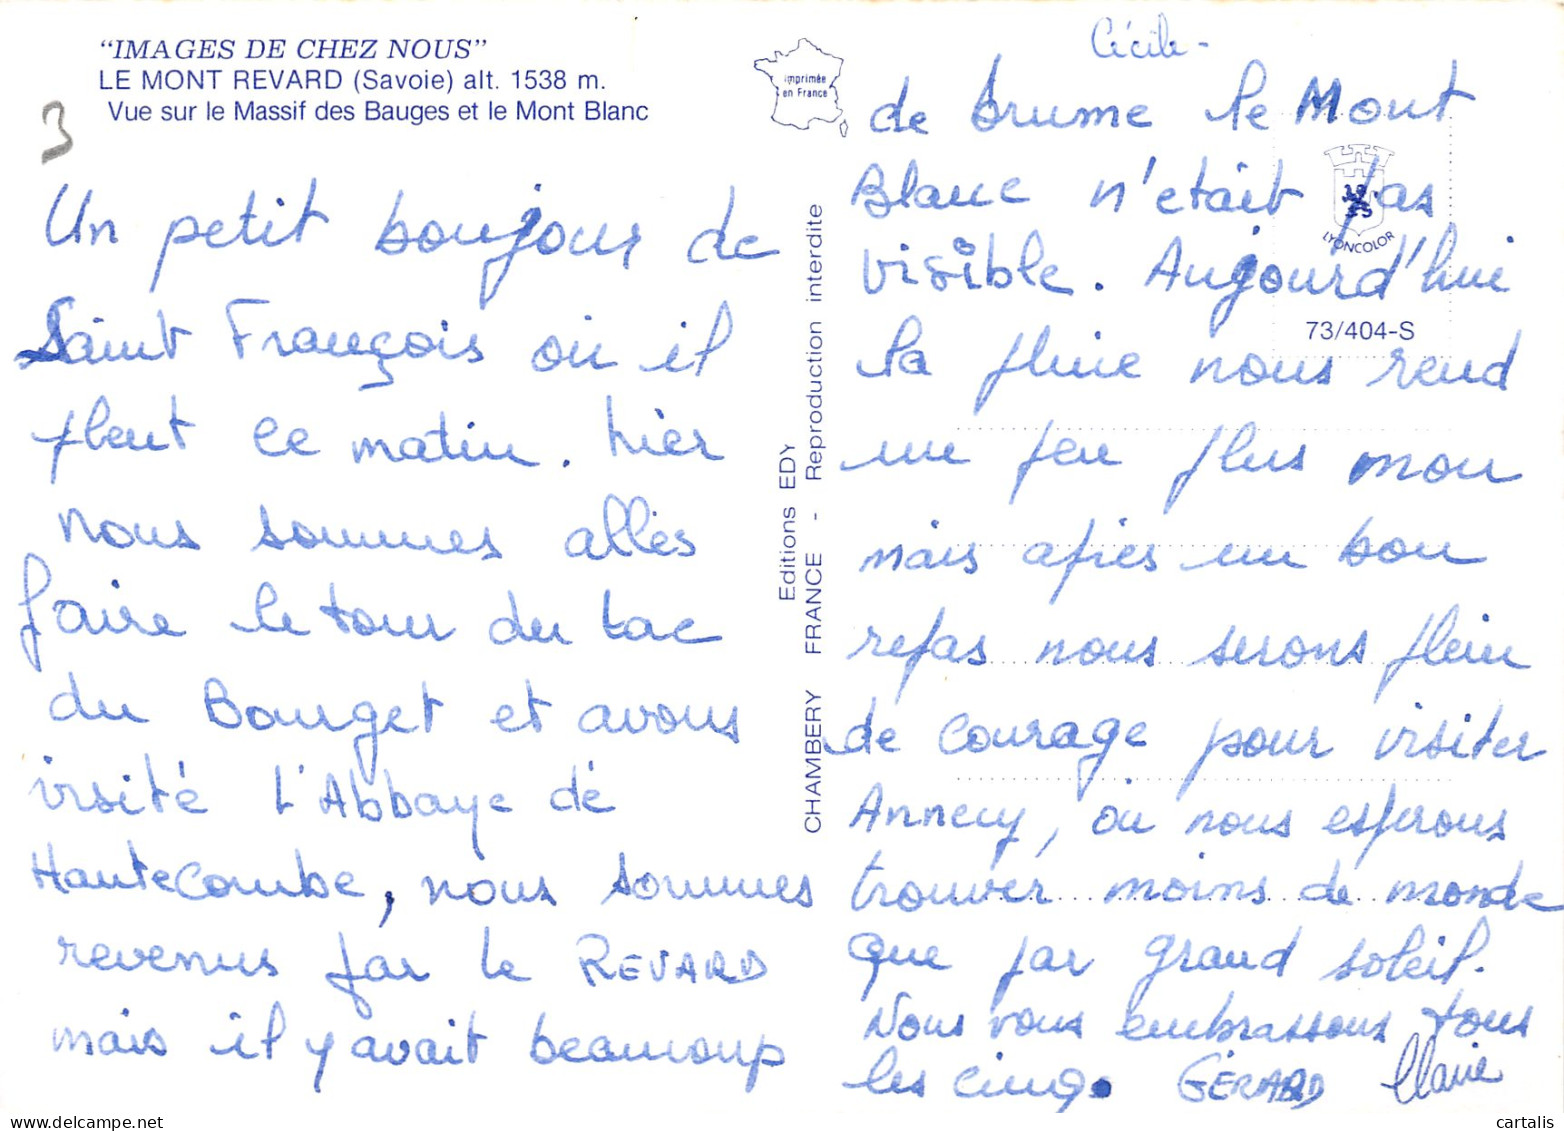 “IMAGES DE CHEZ NOUS”
LE MONT REVARD (Savoie) alt. 1538 m.
Vue sur le Massif des Bauges et le Mont Blanc
3
Un petit boujour de
Saint François où il
pleut ce matin. hier
nous sommes allés
faire le tour du lac
du Bourget et avons
visité l'Abbaye dé
HauteCombe, nous sommes
revenus par le REVARD
mais il y avait beaucoup
imprimée
en France
Editions EDY
CHAMBERY FRANCE - Reproduction interdite
Cécile -
de brume le Mont
Blanc n'etait pas
visible. Aujourd'hui
la pluie nous rend
un peu plus mou
mais après un bon
repas nous serons plein
de courage pour visiter
Annecy, où nous esperons
trouver moins de monde
que par grand soleil.
Nous vous embrassons tous
les cinq. GÉRARD Claire
LYONCOLOR
73/404-S
cartalis